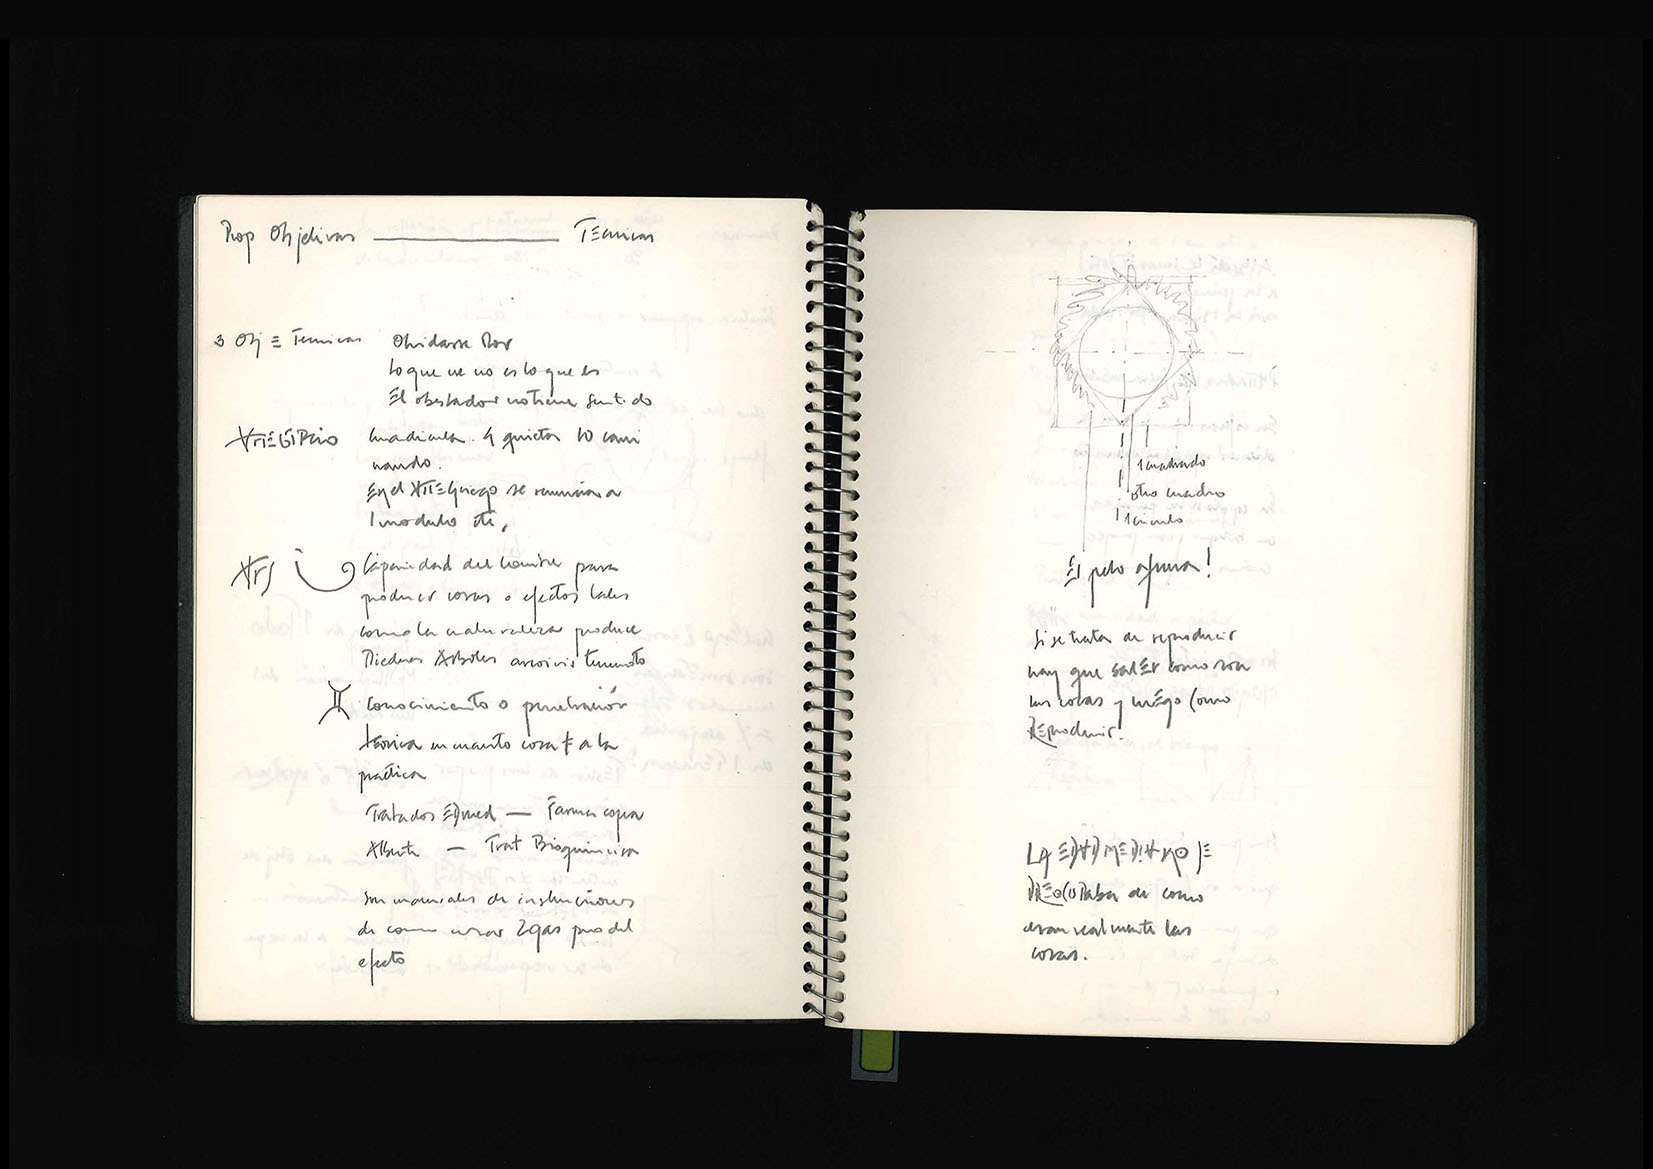 Prop Objetivas ———— Técnicas
3 Obj = Tecnicas Olvidarse Por
Lo que ve no es lo que es
El obserbador no tiene sentido
ARTE EGIPCIO Cuadicula. 4 quietos 10 cami
nando.
En el ARTE griego se renuncia a
1 modulo etc,
ARS Capacidad del hombre para
producir cosas o efectos tales
como la naturaleza produce
Piedras Arboles arcoiris terremoto
Conocimiento o penetración
teorica en cuanto cosa ≠ a la
practica
Tratados EDmed — Farmacopea
— Trat Bioquimica
Son manuales de instrucciones
de como usar del
efecto
1 cuadrado
otro cuadro
1 circulo
El pelo afuera!
Si se trata de reproducir
hay que saber como son
las cosas y luego como
Reproducir.
LA EDAD MEDIA NO SE
PREOCUPaba de como
eran realmente las
cosas.